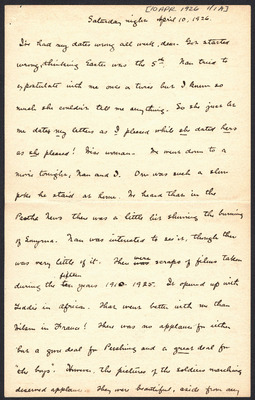 [10 APR. 1926 1/1A]
Saturday night April 10, 1926.
I've had my dates wrong all week, dear. Got started
wrong, thinking Easter was the 5th. Nan tried to
expostulate with me once or twice but I knew so
much she couldn't tell me anything. So she just let
me dates my letters as I pleased while she dated hers
as she pleased! Wise woman. We went down to a
movie tonight, Nan and I. Orm was such a slow
poke he staid at home. We heard that in the
Pathe News there was a little bit showing the burning
of Smyrna. Nan was interested to see it, though there
was very little of it. There were scraps of films taken
during the fifteen years 1910-1925. It opened up with
Teddie in Africa. That went better with me than
Wilson in France! There was no applause for either
but a good deal for Pershing and a great deal for
"the boys". However, the pictures of the soldiers marching
deserved applause. They were beautiful, aside from any